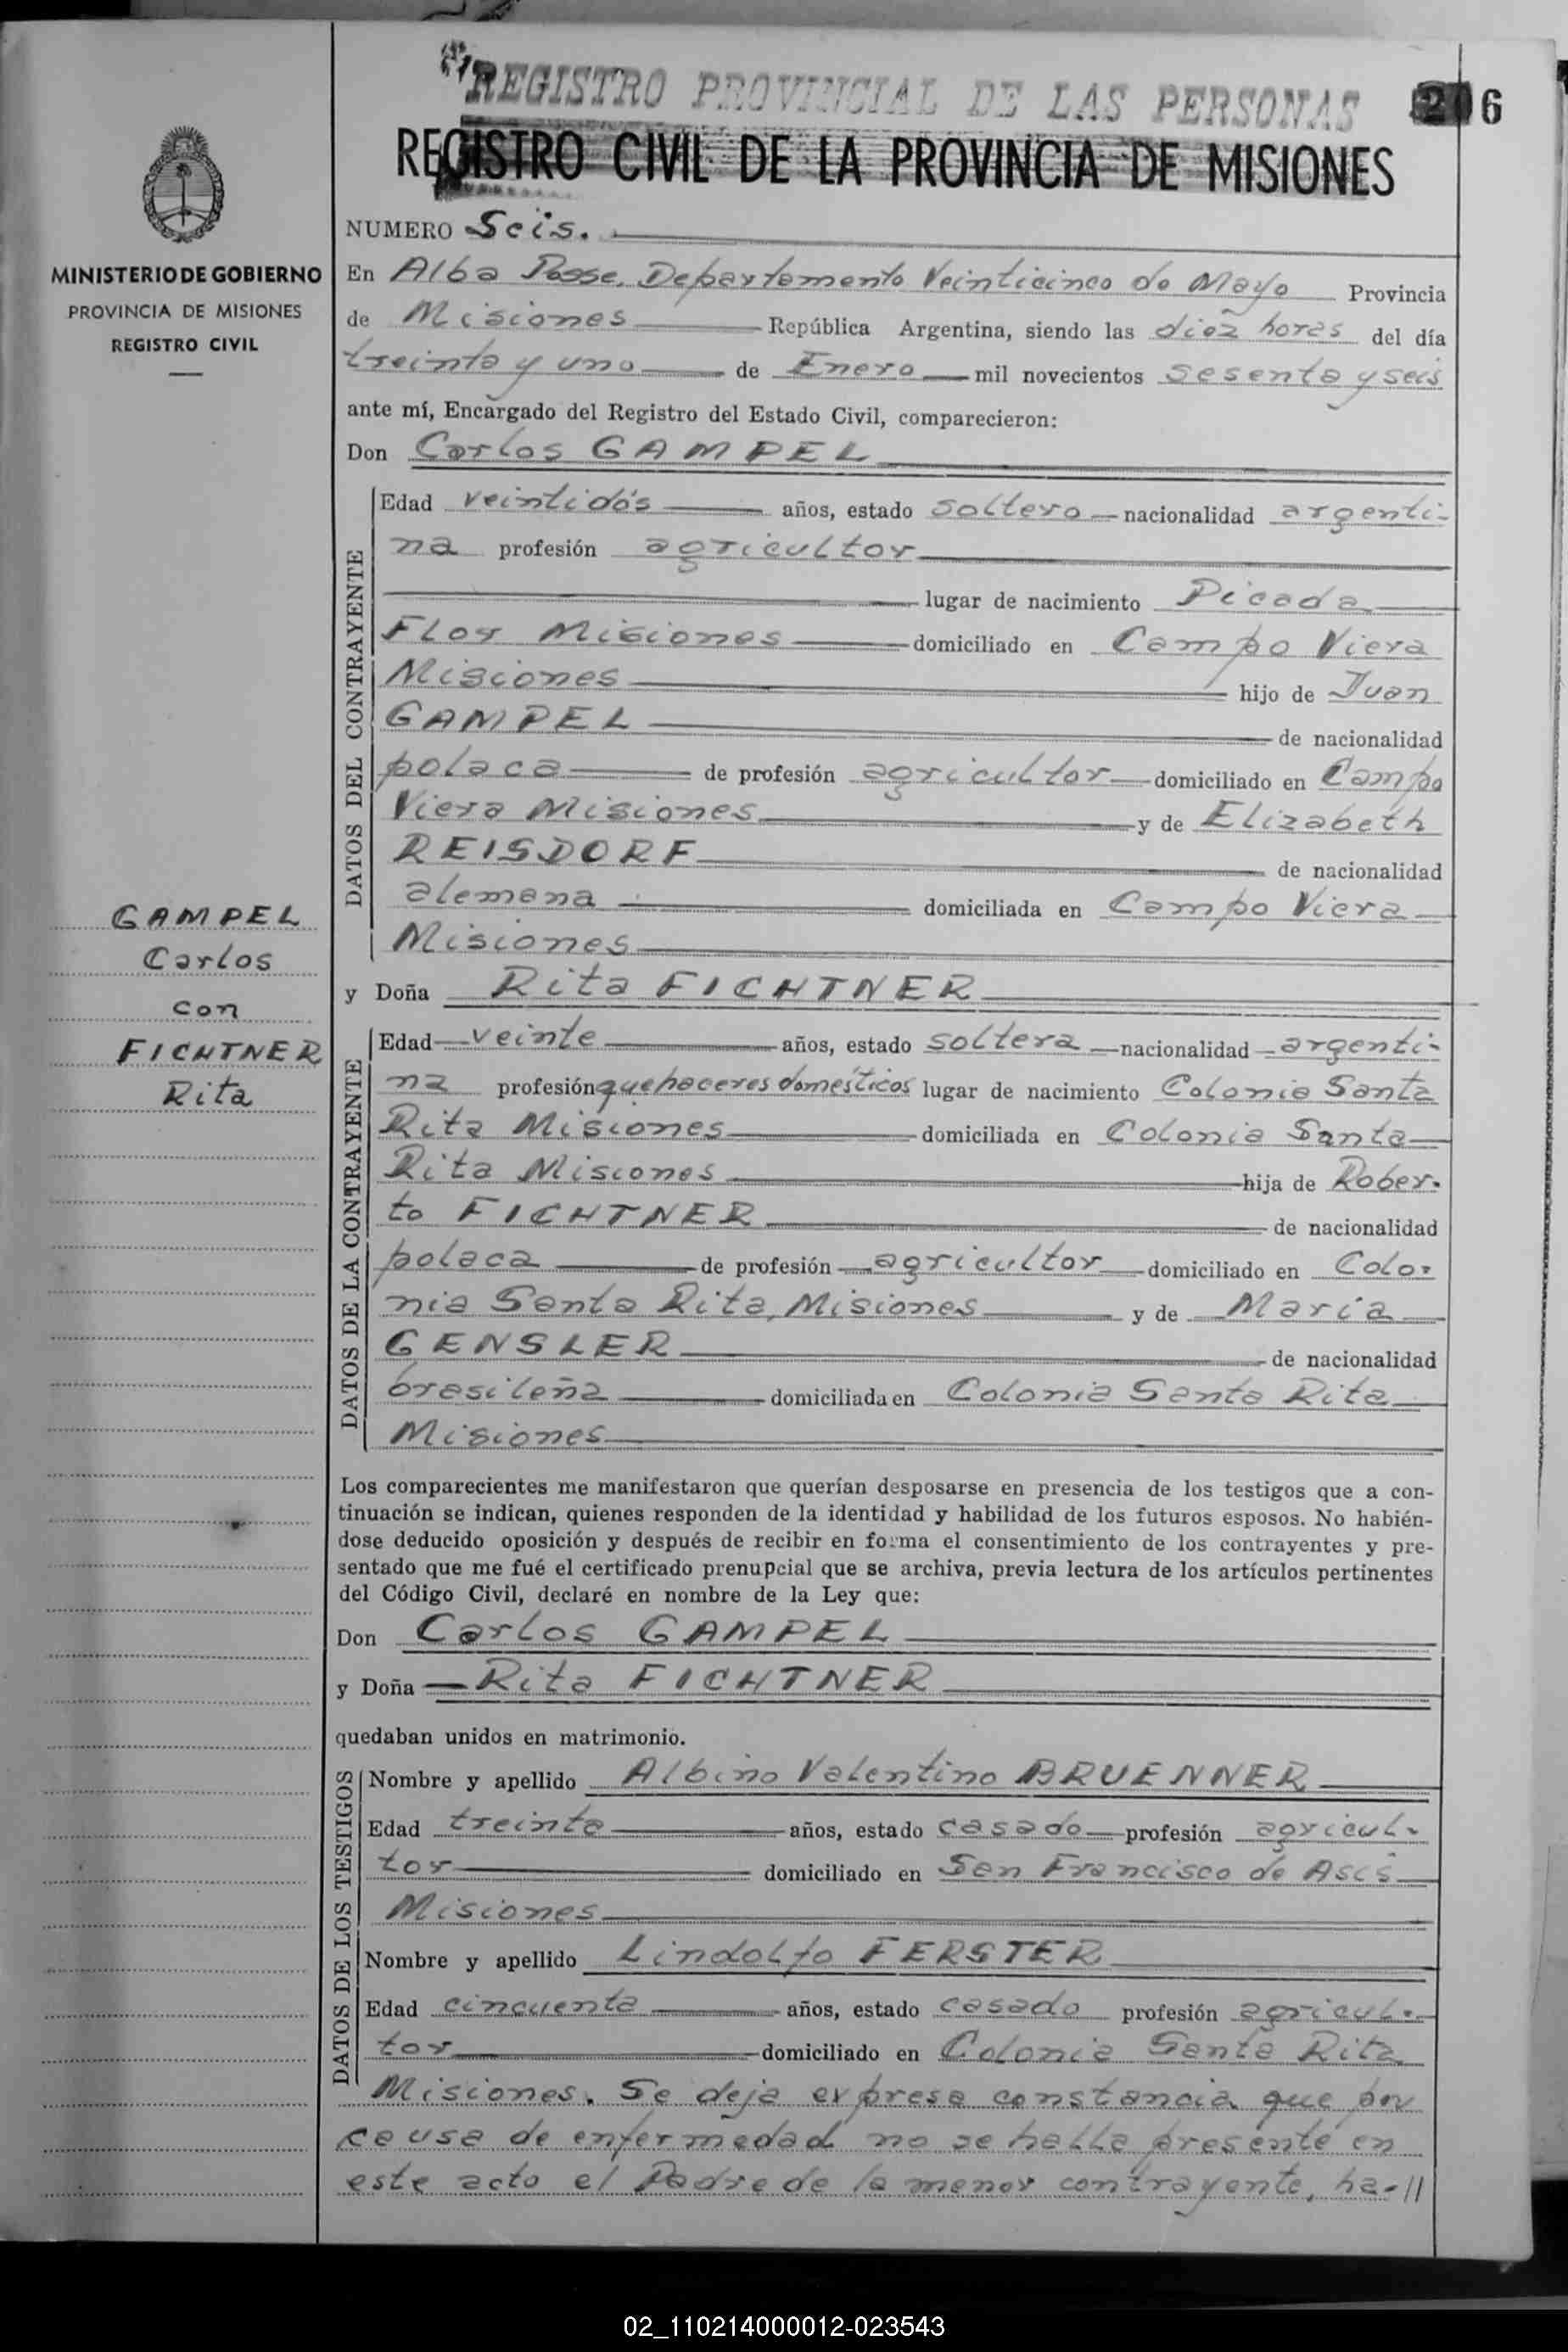 REGISTRO PROVINCIAL DE LAS PERSONAS
6
REGISTRO CIVIL DE LA PROVINCIA DE MISIONES
MINISTERIO DE GOBIERNO
PROVINCIA DE MISIONES
REGISTRO CIVIL
GAMPEL
Carlos
con
FICHTNER
Rita
NUMERO Seis.
En Alba Posse, Departamento Veinticinco de Mayo Provincia
de Misiones República Argentina, siendo las diez horas del día
treinta y uno de Enero mil novecientos sesenta y seis
ante mí, Encargado del Registro del Estado Civil, comparecieron:
Don Carlos GAMPEL
DATOS DEL CONTRAYENTE
Edad veintidós años, estado soltero nacionalidad argenti-
na profesión agricultor
lugar de nacimiento Picada
Flor Misiones domiciliado en Campo Viera
Misiones hijo de Juan
GAMPEL de nacionalidad
polaca de profesión agricultor domiciliado en Campo
Viera Misiones y de Elizabeth
REISDORF de nacionalidad
alemana domiciliada en Campo Viera
Misiones
y Doña Rita FICHTNER
DATOS DE LA CONTRAYENTE
Edad veinte años, estado soltera nacionalidad argenti-
na profesión quehaceres domésticos lugar de nacimiento Colonia Santa
Rita Misiones domiciliada en Colonia Santa
Rita Misiones hija de Rober-
to FICHTNER de nacionalidad
polaca de profesión agricultor domiciliado en Colo-
nia Santa Rita, Misiones y de María
GENSLER de nacionalidad
brasileña domiciliada en Colonia Santa Rita
Misiones
Los comparecientes me manifestaron que querían desposarse en presencia de los testigos que a con-
tinuación se indican, quienes responden de la identidad y habilidad de los futuros esposos. No habién-
dose deducido oposición y después de recibir en forma el consentimiento de los contrayentes y pre-
sentado que me fué el certificado prenupcial que se archiva, previa lectura de los artículos pertinentes
del Código Civil, declaré en nombre de la Ley que:
Don Carlos GAMPEL
y Doña Rita FICHTNER
quedaban unidos en matrimonio.
DATOS DE LOS TESTIGOS
Nombre y apellido Albino Valentino BRUENNER
Edad treinta años, estado casado profesión agricul-
tor domiciliado en San Francisco de Asís
Misiones
Nombre y apellido Lindolfo FERSTER
Edad cincuenta años, estado casado profesión agricul-
tor domiciliado en Colonia Santa Rita
Misiones. Se deja expresa constancia que por
causa de enfermedad no se halla presente en
este acto el Padre de la menor contrayente, ha-//
02_110214000012-023543